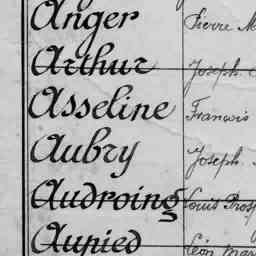 Anger Pierre M
Arthur Joseph
Asseline François
Aubry Joseph
Audroing Louis Prosp
Aupied Léon Mar